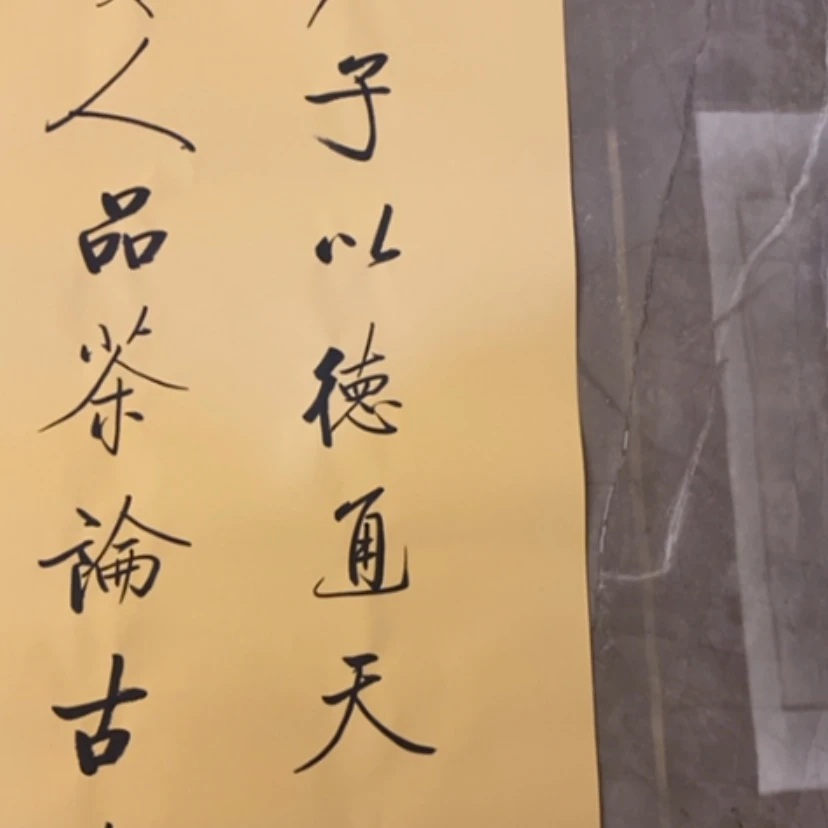 子以德通天
人品茶論古